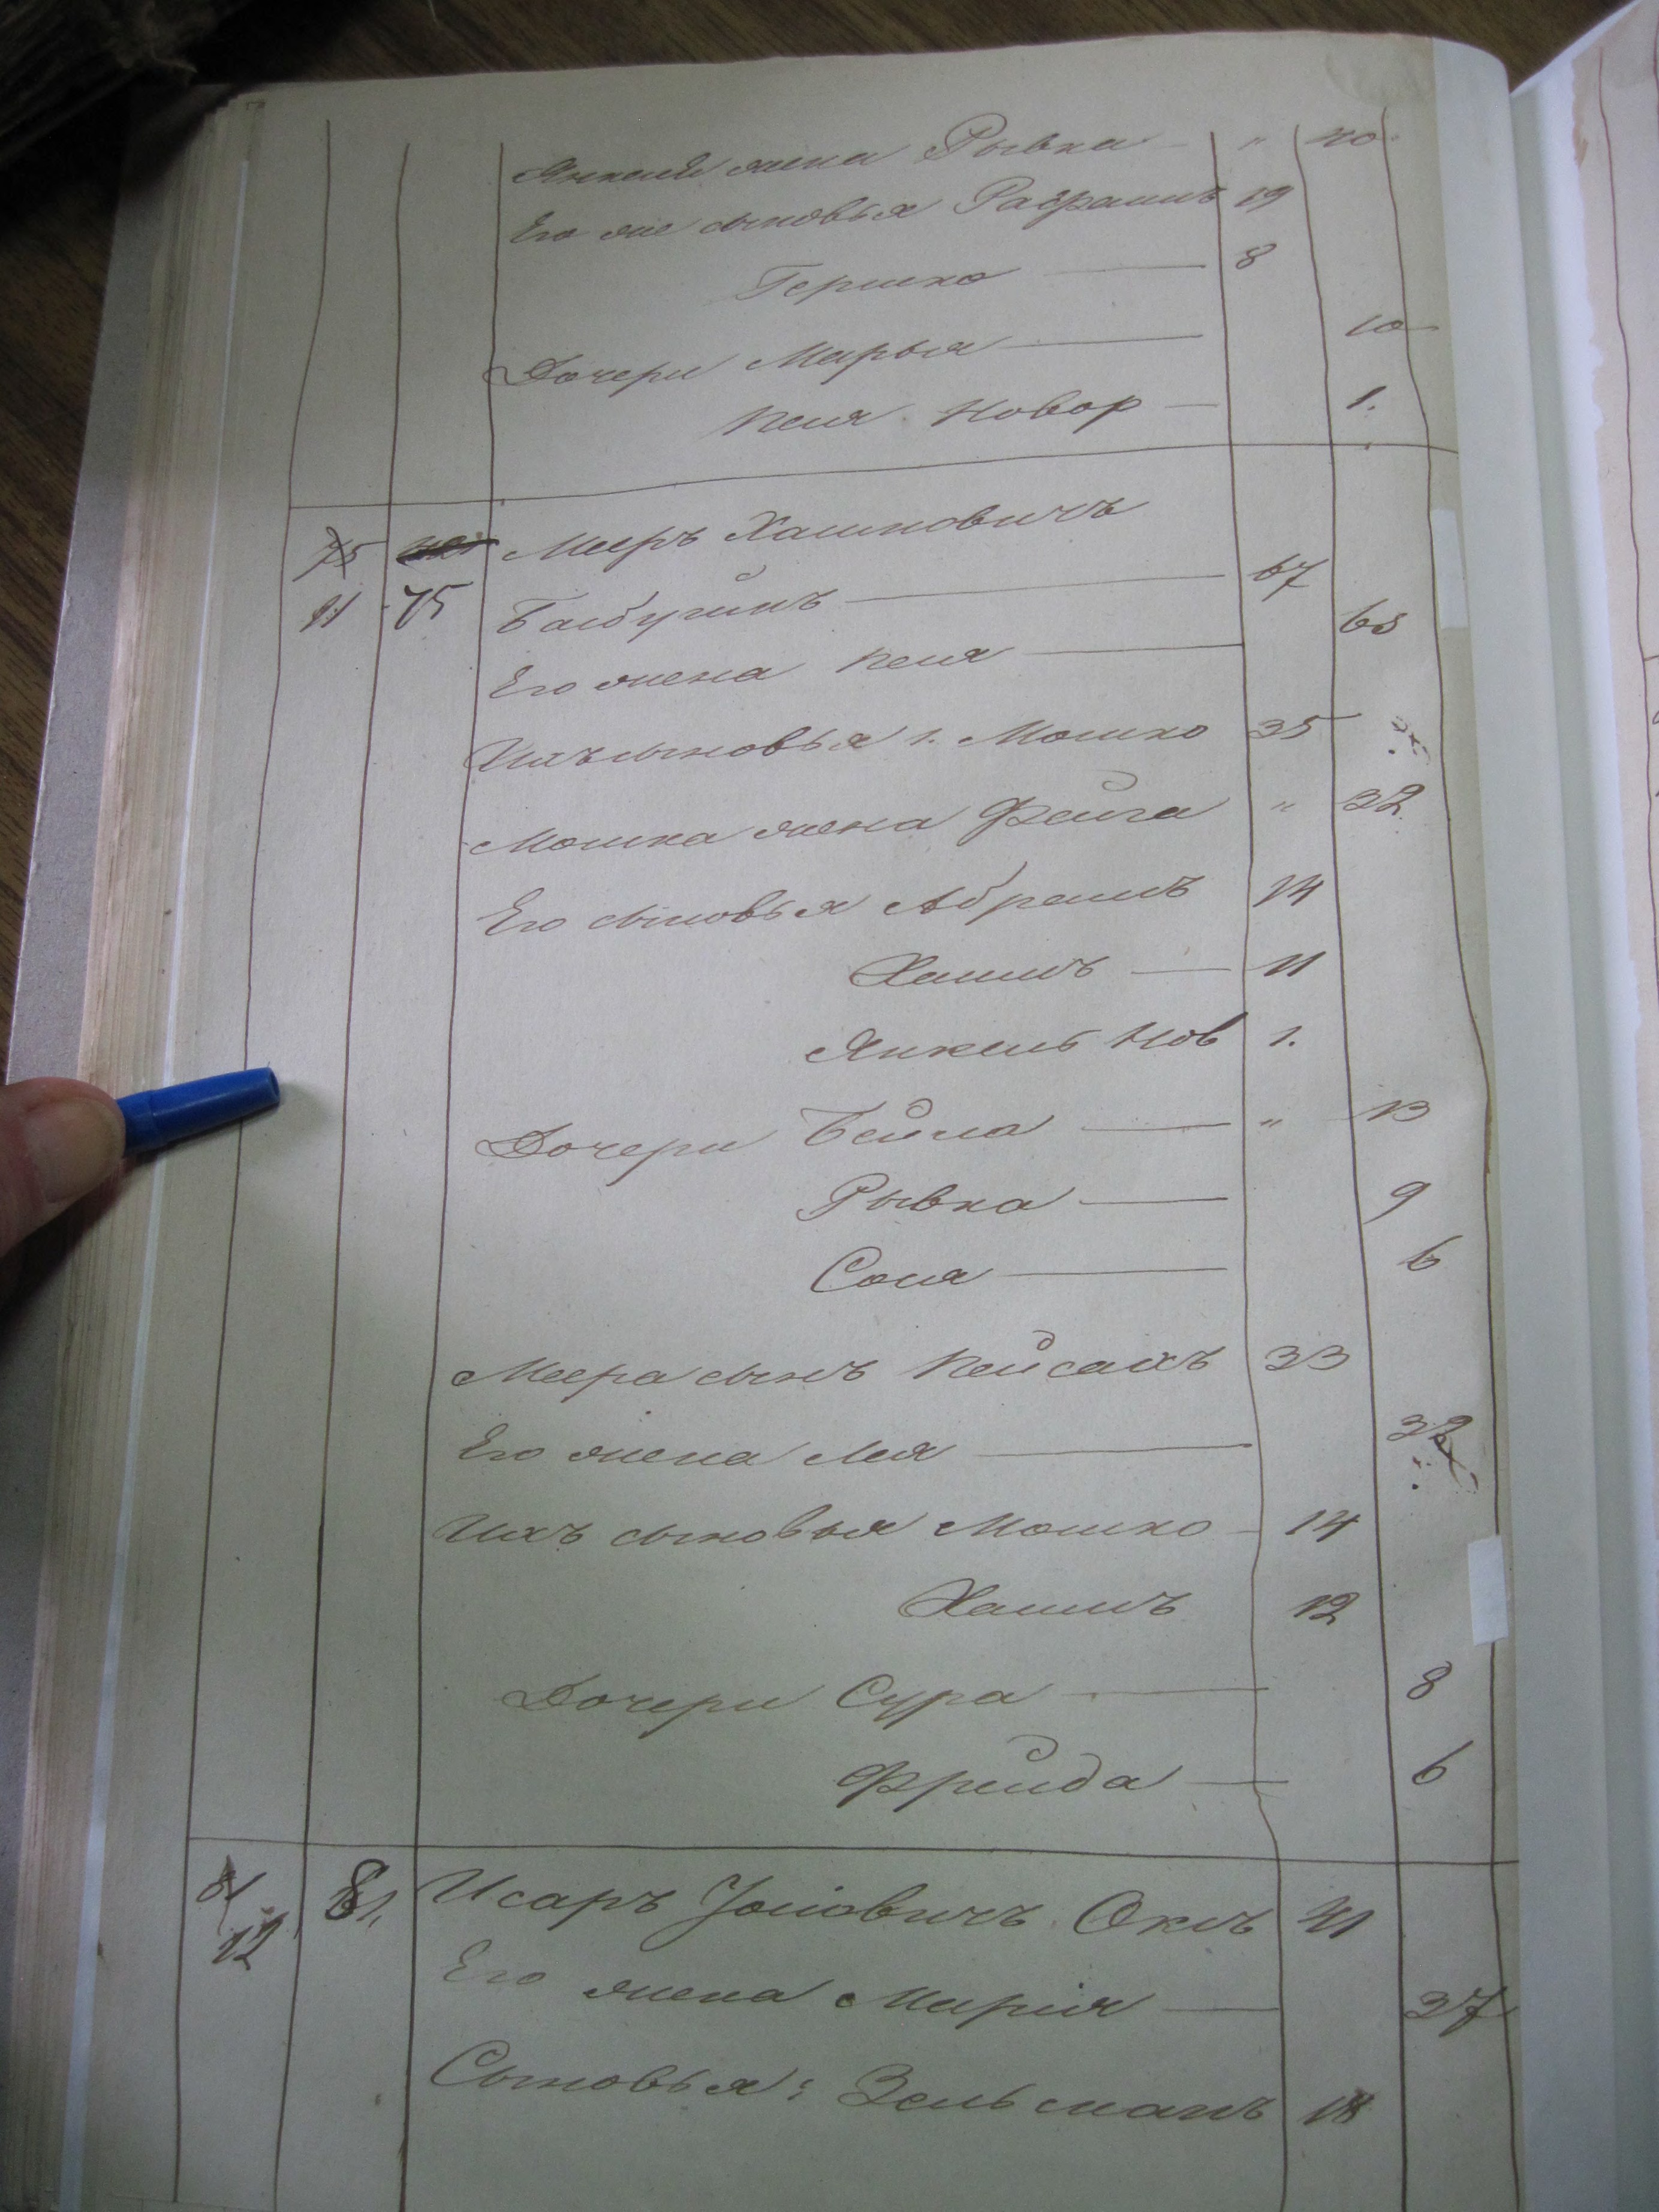 Янкеля жена Рывка — " 40
Его же сыновья 19
Гершко — 8
Дочери Марья — 10
Песя Новор — 1.
75 Мееръ Хаимовичъ
11 75 — 67
Его жена Песя — 68
Ихъ сыновья 1. Мошко 35
Мошка жена Фейга " 32
Его сыновья Абрамъ 14
Хаимъ — 11
Янкель Нов 1.
Дочери Бейла — " 13
Рывка — 9
Соня — 6
Меера сынъ Пейсахъ 33
Его жена Лея — 32
Ихъ сыновья Мошко — 14
Хаимъ 12
Дочери Сура — 8
Фрейда — 6
81 81. Исаръ Окль 41
12
Его жена Мирія — 37
Сыновья: Зельманъ